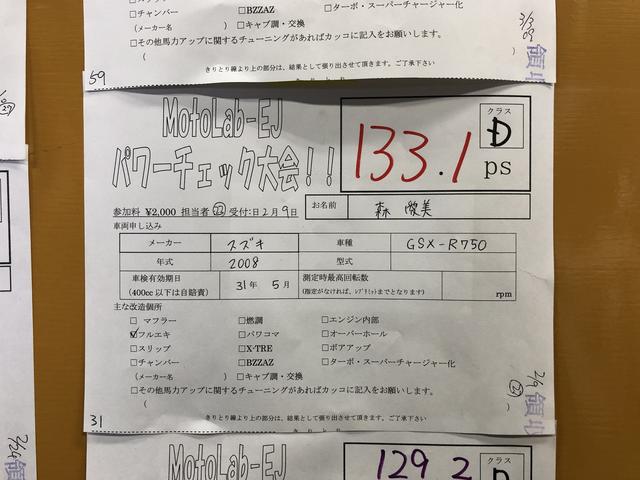 □チャンバー □BZZAZ □ターボ・スーパーチャージャー化
(メーカー名 ) □キャブ調・交換
□その他馬力アップに関するチューニングがあればカッコに記入をお願いします。
(
きりとり線より上の部分は、結果として張り出させて頂きます。ご了承下さい
59
3/3
領収
MotoLab-EJ
パワーチェック大会!!
133.1 ps
クラス
D
参加料 ¥2,000 担当者 22 受付:日2月9日
お名前 森 愛美
車両申し込み
メーカー スズキ 車種 GSX-R750
年式 2008 型式
車検有効期日 31年 5月 測定時最高回転数
(400cc 以下は自賠責) (指定がなければ、レブリミットまでとなります) rpm
主な改造個所
□ マフラー □燃調 □エンジン内部
☑フルエキ □パワコマ □オーバーホール
□スリップ □X-TRE □ボアアップ
□チャンバー □BZZAZ □ターボ・スーパーチャージャー化
(メーカー名 ) □キャブ調・交換
□その他馬力アップに関するチューニングがあればカッコに記入をお願いします。
(
きりとり線より上の部分は、結果として張り出させて頂きます。ご了承下さい
31
2/9
22
領収
2/24
領
MotoLab-EJ
129 2
クラス